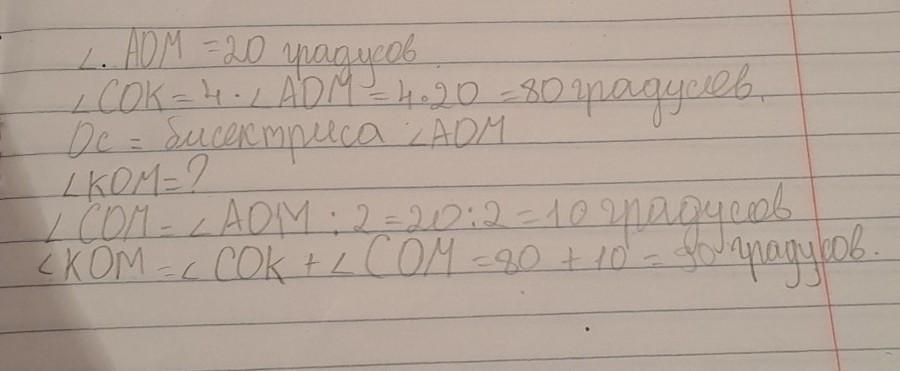 ∠. AOM = 20 градусов
∠COK = 4 · ∠AOM = 4·20 = 80 градусов.
Ос = бисектриса ∠AOM
∠KOM = ?
∠COM = ∠AOM : 2 = 20 : 2 = 10 градусов
∠KOM = ∠COK + ∠COM = 80 + 10 = 90 градусов.